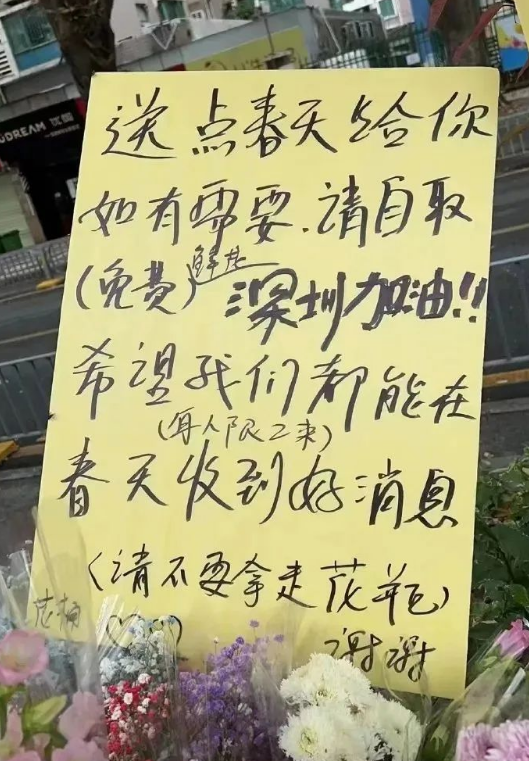 DREAM
送点春天给你
如有需要.请自取
(免费)鲜花 深圳加油!!
希望我们都能在
(每人限二束)
春天收到好消息
(请不要拿走花瓶)
谢谢